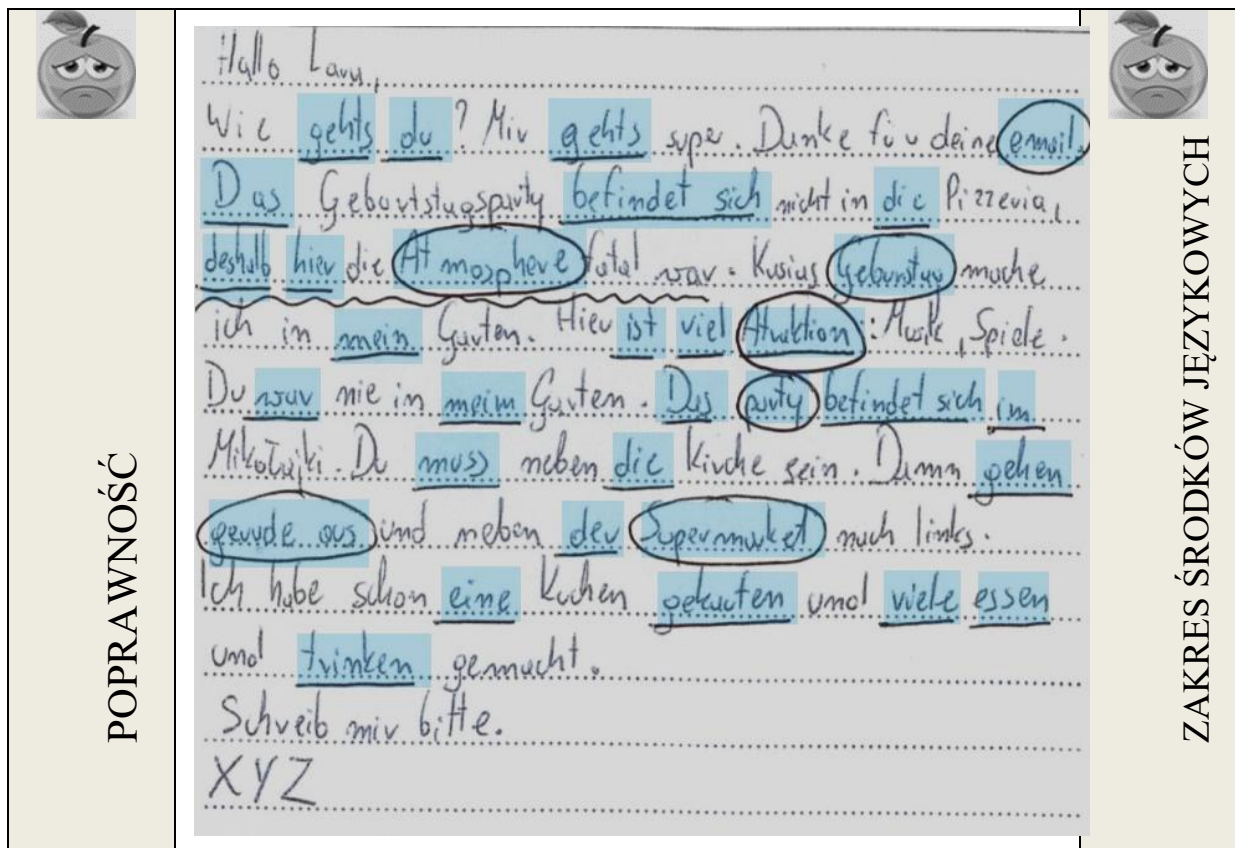 POPRAWNOŚĆ
Hallo Lara,
Wie gehts du? Mir gehts super. Danke für deine email.
Das Geburtstagsparty befindet sich nicht in die Pizzeria,
deshalb hier die Atmosphere fatal war. Kasias Geburstag mache
ich in mein Garten. Hier ist viel Atraktion: Musik, Spiele.
Du war nie in meim Garten. Das party befindet sich im
Mikołajki. Du muss neben die Kirche sein. Dann gehen
gerade aus und neben der Supermarket nach links.
Ich habe schon eine Kuchen gekauten und viele essen
und trinken gemacht.
Schreib mir bitte.
XYZ
ZAKRES ŚRODKÓW JĘZYKOWYCH